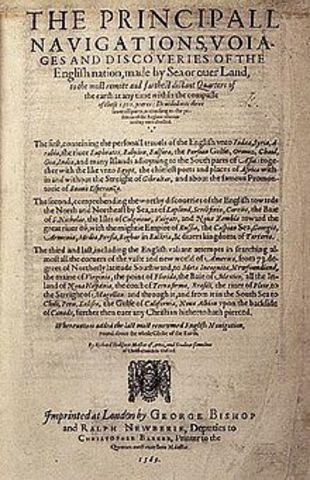 THE PRINCIPALL
NAVIGATIONS, VOIA-
GES AND DISCOVERIES OF THE
English nation, made by Sea or ouer Land,
to the most remote and farthest distant Quarters of
the earth at any time within the compasse
of these 1500. yeeres: Deuided into three
seuerall parts, according to the po-
sitions of the Regions whereunto
they were directed.
The first, conteining the personall trauels of the English vnto Iudæa, Syria, A-
rabia, the riuer Euphrates, Babylon, Balsara, the Persian Gulfe, Ormuz, Chaul,
Goa, India, and many Islands adioyning to the South parts of Asia: together
with the like vnto Egypt, the chiefest ports and places of Africa with-
in and without the Streight of Gibraltar, and about the famous Promon-
torie of Buona Esperanza.
The second, comprehending the worthy discoueries of the English towards
the North and Northeast by Sea, as of Lapland, Scrikfinia, Corelia, the Baie
of S. Nicholas, the Isles of Colgoieue, Vaigatz, and Noua Zembla toward the
great riuer Ob, with the mightie Empire of Russia, the Caspian Sea, Georgia,
Armenia, Media, Persia, Boghar in Bactria, & diuers kingdoms of Tartaria.
The third and last, including the English valiant attempts in searching al-
most all the corners of the vaste and new world of America, from 73. de-
grees of Northerly latitude Southward, to Meta Incognita, Newfoundland,
the maine of Virginia, the point of Florida, the Baie of Mexico, all the In-
land of Noua Hispania, the coast of Terra firma, Brasill, the riuer of Plate, to
the Streight of Magellan: and through it, and from it in the South Sea to
Chili, Peru, Xalisco, the Gulfe of California, Noua Albion vpon the backside
of Canada, further then euer any Christian hitherto hath pierced.
Whereunto is added the last most renowmed English Nauigation,
round about the whole Globe of the Earth.
By Richard Hakluyt Master of Artes, and Student sometime
of Christ-church in Oxford.
Imprinted at London by GEORGE BISHOP
and RALPH NEWBERIE, Deputies to
CHRISTOPHER BARKER, Printer to the
Queenes most excellent Maiestie.
1589.